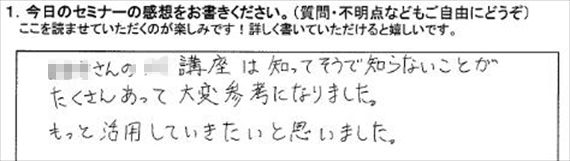 1. 今日のセミナーの感想をお書きください。(質問・不明点などもご自由にどうぞ)
ここを読ませていただくのが楽しみです!詳しく書いていただけると嬉しいです。
さんの 講座は知ってそうで知らないことが
たくさんあって大変参考になりました。
もっと活用していきたいと思いました。